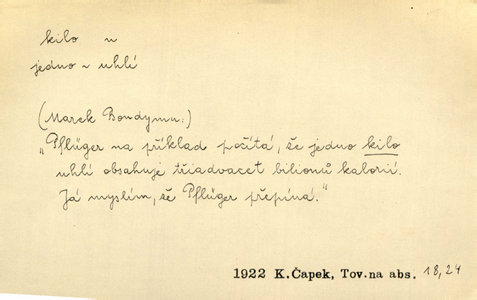 kilo n
jedno ~ uhlí
(Marek Bondymu:)
„Pflüger na příklad počítá, že jedno kilo
uhlí obsahuje třiadvacet bilionů kalorií.
Já myslím, že Pflüger přepíná.“
1922 K.Čapek, Tov.na abs. 18,24